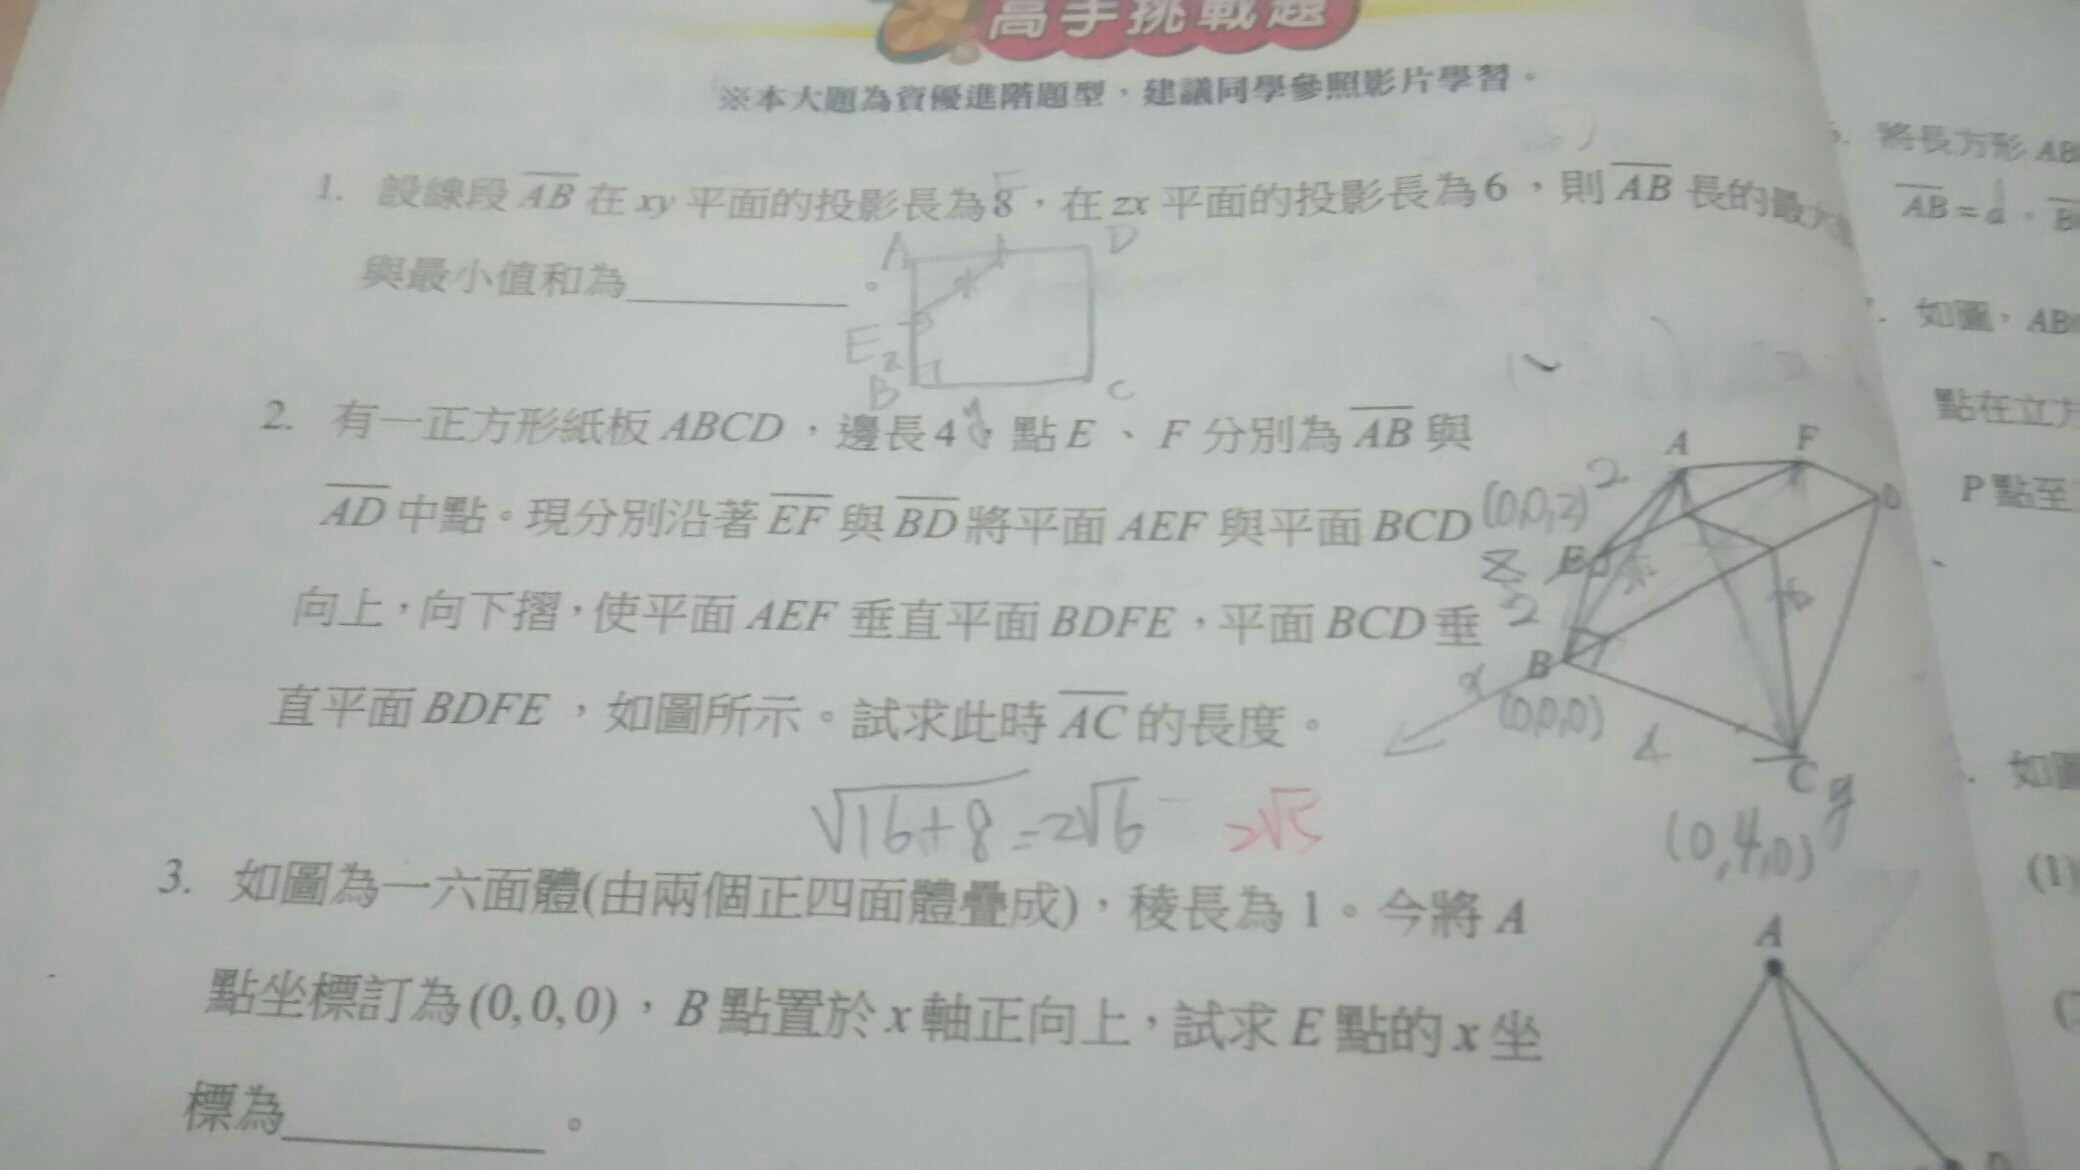 高手挑戰題
※本大題為資優進階題型，建議同學參照影片學習。
1. 設線段 AB 在 xy 平面的投影長為8，在 zx 平面的投影長為6，則 AB 長的最大
與最小值和為________。
A D
E
2
B C
2. 有一正方形紙板 ABCD，邊長4，點 E、F 分別為 AB 與
AD 中點。現分別沿著 EF 與 BD 將平面 AEF 與平面 BCD
向上，向下摺，使平面 AEF 垂直平面 BDFE，平面 BCD 垂
直平面 BDFE，如圖所示。試求此時 AC 的長度。
A F
(0,0,2) 2
E D
2
B
(0,0,0) 4
C y
(0,4,0)
√16+8=2√6 2√5
3. 如圖為一六面體(由兩個正四面體疊成)，稜長為 1。今將 A
點坐標訂為(0,0,0)，B 點置於 x 軸正向上，試求 E 點的 x 坐
標為________。
A
將長方形 AB
AB = a
如圖，AB
點在立方
P 點至
如圖
(1)